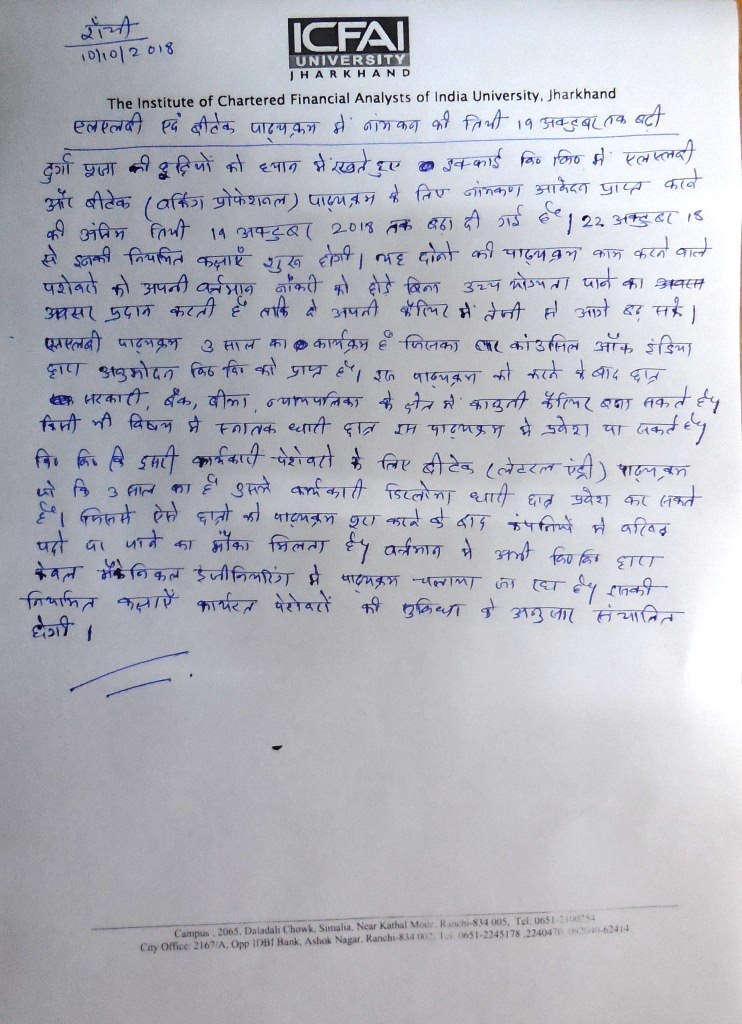 राँची
10/10/2018
ICFAI
UNIVERSITY
JHARKHAND
The Institute of Chartered Financial Analysts of India University, Jharkhand
एलएलबी एवं बीटेक पाठ्यक्रम में नांमकन की तिथी 19 अक्टुबर तक बढी
दुर्गा पूजा की छुट्टियों को ध्यान में रखते हुए इक्फाई वि० वि० में एलएलबी
और बीटेक (वर्किंग प्रोफेशनल) पाठ्यक्रम के लिए नांमकण आवेदन प्राप्त करने
की अंतिम तिथी 19 अक्टुबर 2018 तक बढा दी गई है। 22 अक्टुबर 18
से इनकी नियमित कक्षाएँ शुरू होगी। यह दोनो की पाठ्यक्रम काम करने वाले
पेशेवरो को अपनी वर्तमान नौकरी को छोडे बिना उच्च योग्यता पाने का
अवसर प्रदान करती है ताकि वे अपनी कैरियर में तेजी से आगे बढ़ सके।
एलएलबी पाठ्यक्रम 3 साल का कार्यक्रम है जिसका बार काउंसिल ऑफ इंडिया
द्वारा अनुमोदन वि० वि० को प्राप्त है। इस पाठ्यक्रम को करने के बाद छात्र
सरकारी, बैंक, बीमा, न्यायपालिका के क्षेत्र में कानुनी कैरियर बना सकते है।
किसी भी विषय में स्नातक धारी छात्र इस पाठ्यक्रम मे प्रवेश पा सकते है।
वि० वि० के इसी कार्यकारी पेशेवरो के लिए बीटेक (लेटरल एंट्री) पाठ्यक्रम
जो कि 3 साल का है उसमे कार्यकारी डिप्लोमा धारी छात्र प्रवेश कर सकते
है। जिससे ऐसे छात्रो को पाठ्यक्रम पूरा करने के बाद कंपनियों में वरिष्ठ
पदो पर जाने का मौका मिलता है। वर्तमान मे अभी वि० वि० द्वारा
केवल मैकेनिकल इंजीनियरिंग मे पाठ्यक्रम चलाया जा रहा है। इसकी
नियमित कक्षाएँ कार्यरत पेशेवरों की सुविधा के अनुसार संचालित
होगी।
Campus : 2065, Daladali Chowk, Simalia, Near Kathal More, Ranchi-834 005, Tel: 0651-2100254
City Office: 2167/A, Opp IDBI Bank, Ashok Nagar, Ranchi-834 002, Tel: 0651-2245178 ,2240470, 092040-62414